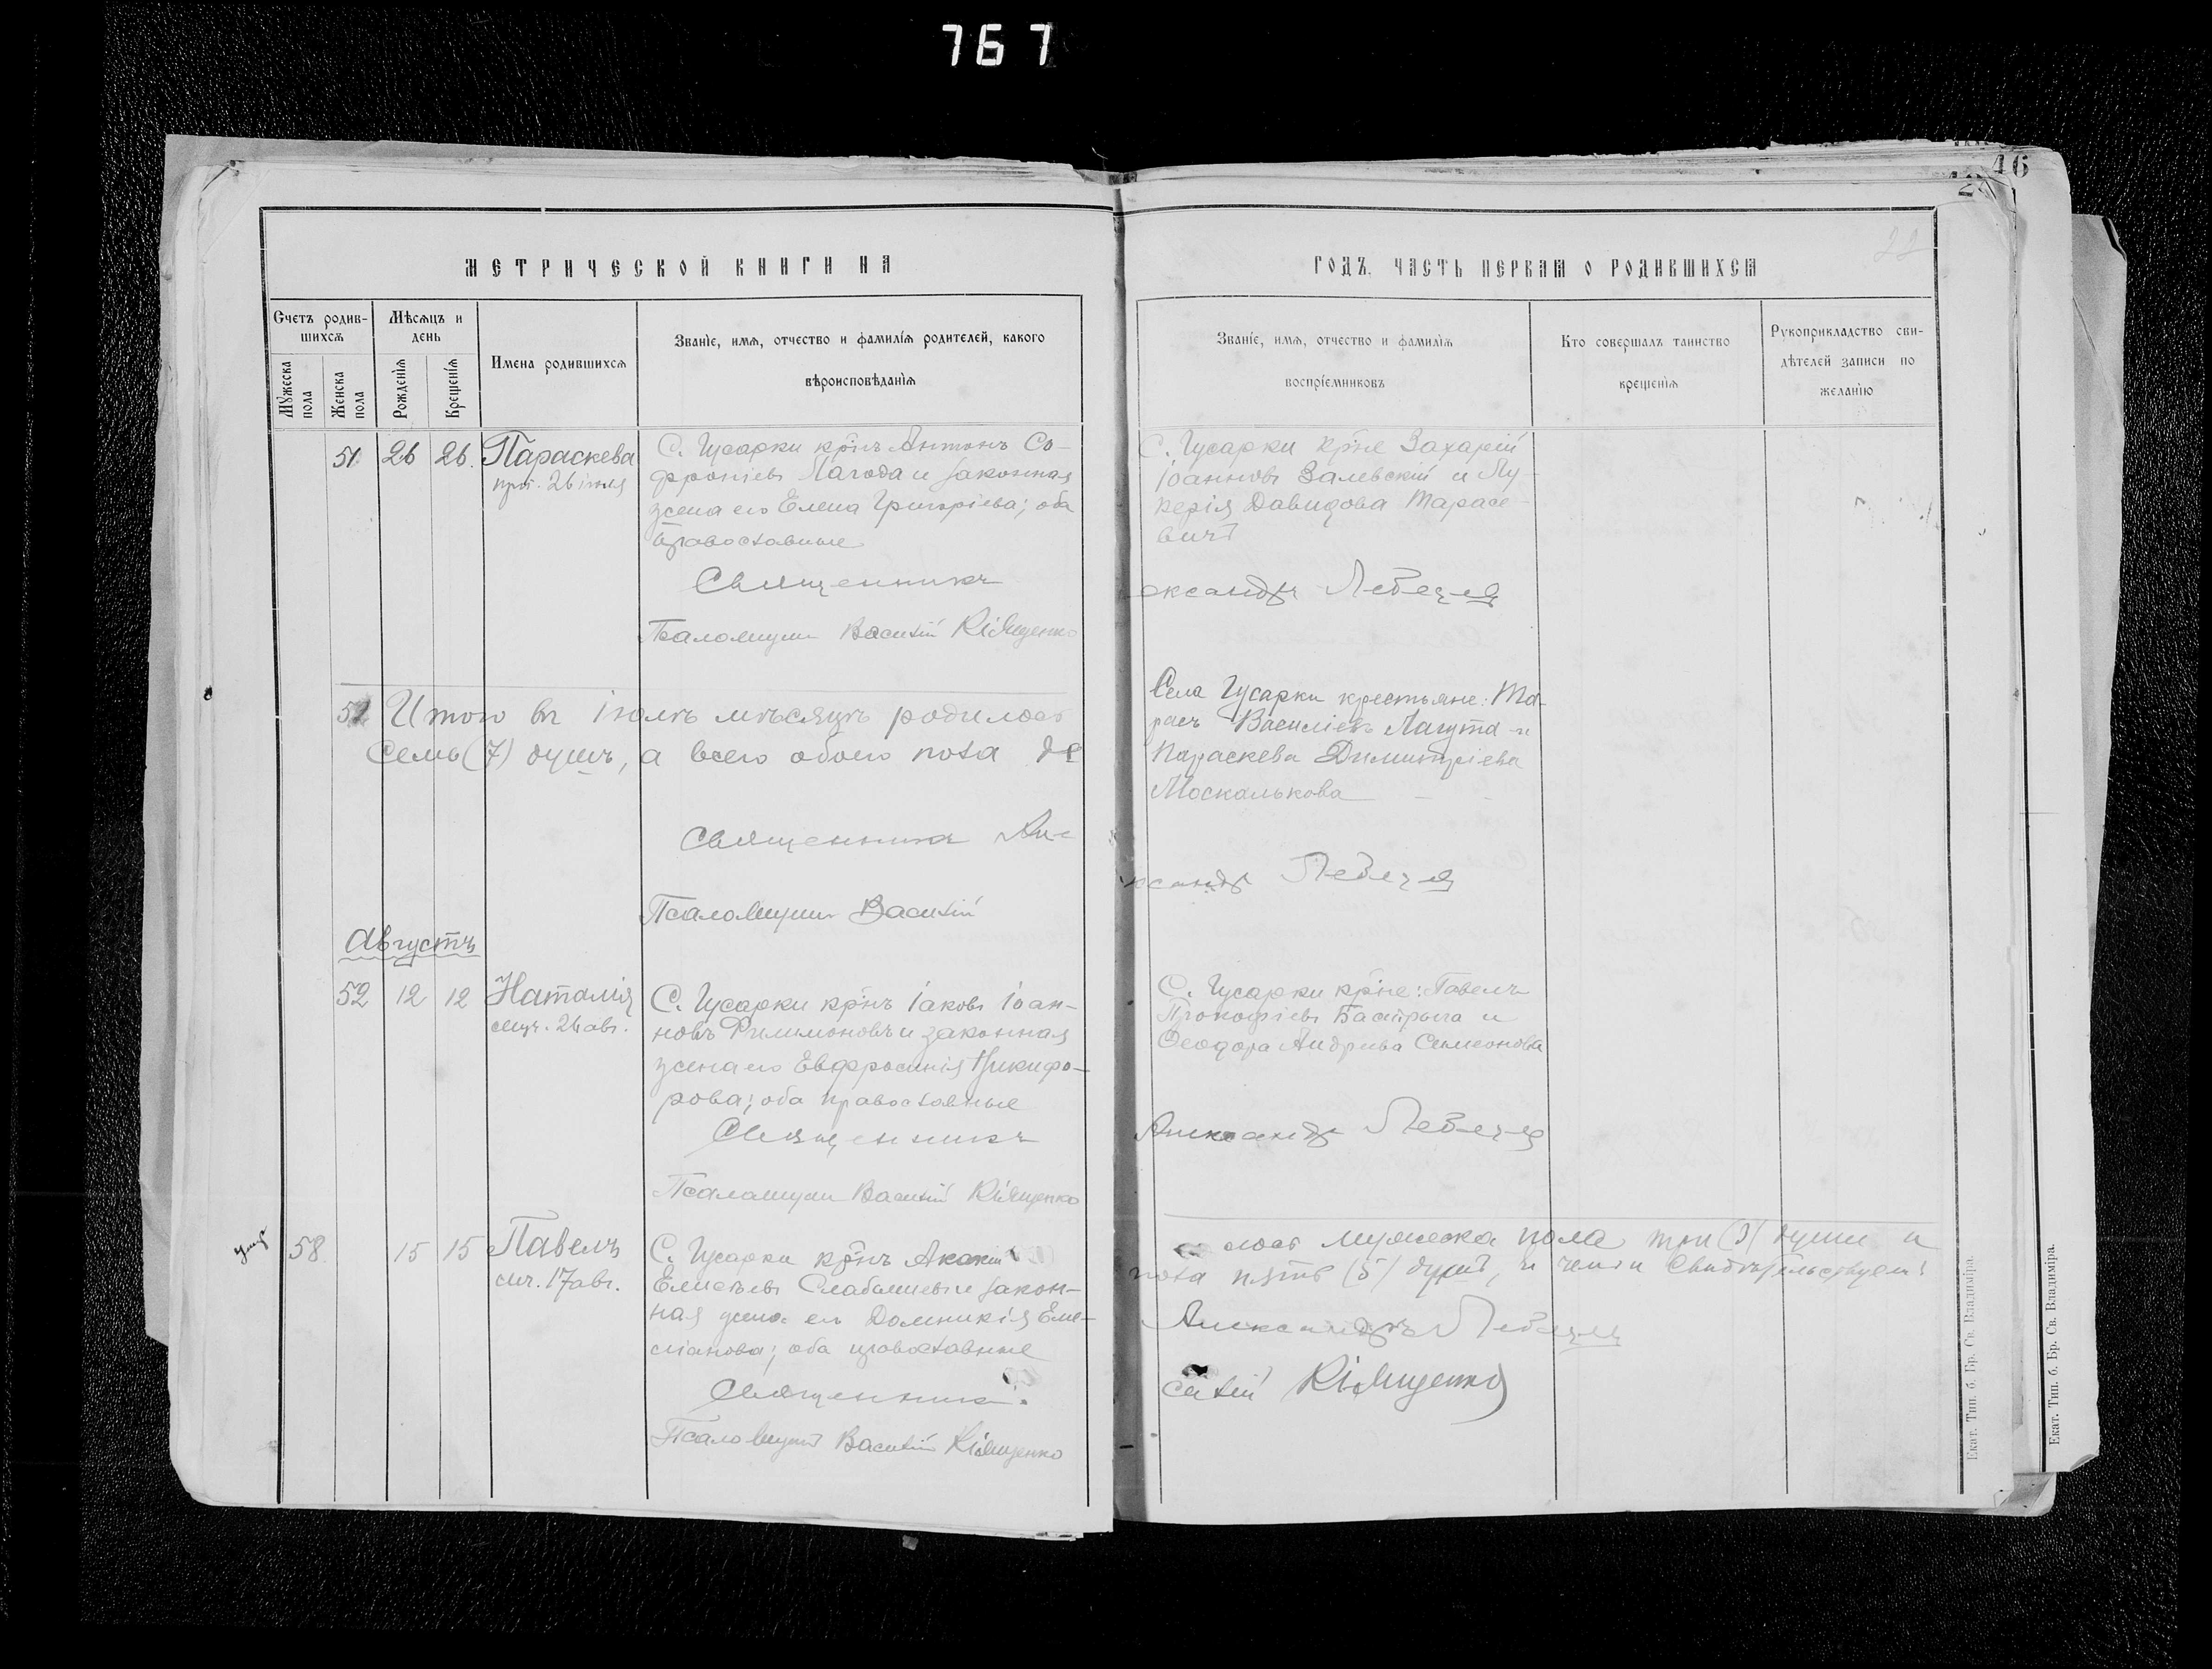 767
46
МЕТРИЧЕСКОЙ КНИГИ НА
Счетъ родив-
шихся
Мѣсяцъ и
день
Мужеска
пола
Женска
пола
Рожденія
Крещенія
Имена родившихся
Званіе, имя, отчество и фамилія родителей, какого
вѣроисповѣданія
51 26 26. Параскева
26 іюля
С. Гусарки кр̃нъ Антонъ Со-
фроніевъ Лагода и законная
жена его Елена Григоріева; оба
православные
Священникъ
Псаломщикъ Василій Кіященко
Итого въ іюлѣ мѣсяцѣ родилось
семь (7) душъ, а всего обоего пола
Священникъ Але
Псаломщикъ Василій
Августъ
52 12 12 Наталія
26 авг.
С. Гусарки кр̃нъ Іаковъ Іоан-
новъ Филимоновъ и законная
жена его Евфросинія Никифо-
рова; оба православные
Священникъ
Псаломщикъ Василій Кіященко
58 15 15 Павелъ
17 авг.
С. Гусарки кр̃нъ Акакій
Елисѣевъ и закон-
ная жена его Домникія Еме-
ліанова; оба православные
Священникъ
Псаломщикъ Василій Кіященко
22
ГОДЪ, ЧАСТЬ ПЕРВАЯ О РОДИВШИХСЯ
Званіе, имя, отчество и фамилія
воспріемниковъ
Кто совершалъ таинство
крещенія
Рукоприкладство сви-
дѣтелей записи по
желанію
С. Гусарки кр̃не Захарій
Іоанновъ Залевскій и Лу-
керія Давидова Тарасе-
вичъ
ександръ Лебедев
Села Гусарки крестьяне: Та-
расъ Василіевъ Лагута и
Параскева Димитріева
Москалькова
ксандръ
С. Гусарки кр̃не: Павелъ
Прокофіевъ Бастрыга и
Ѳеодора Андреева Семенова
Александръ
лось мужеска пола три (3) души и
пола пять (5) душъ, въ чемъ и свидѣтельствуемъ
Александръ
силій Кіященко
Екат. Тип. б. Бр. Св. Владиміра.
Екат. Тип. б. Бр. Св. Владиміра.